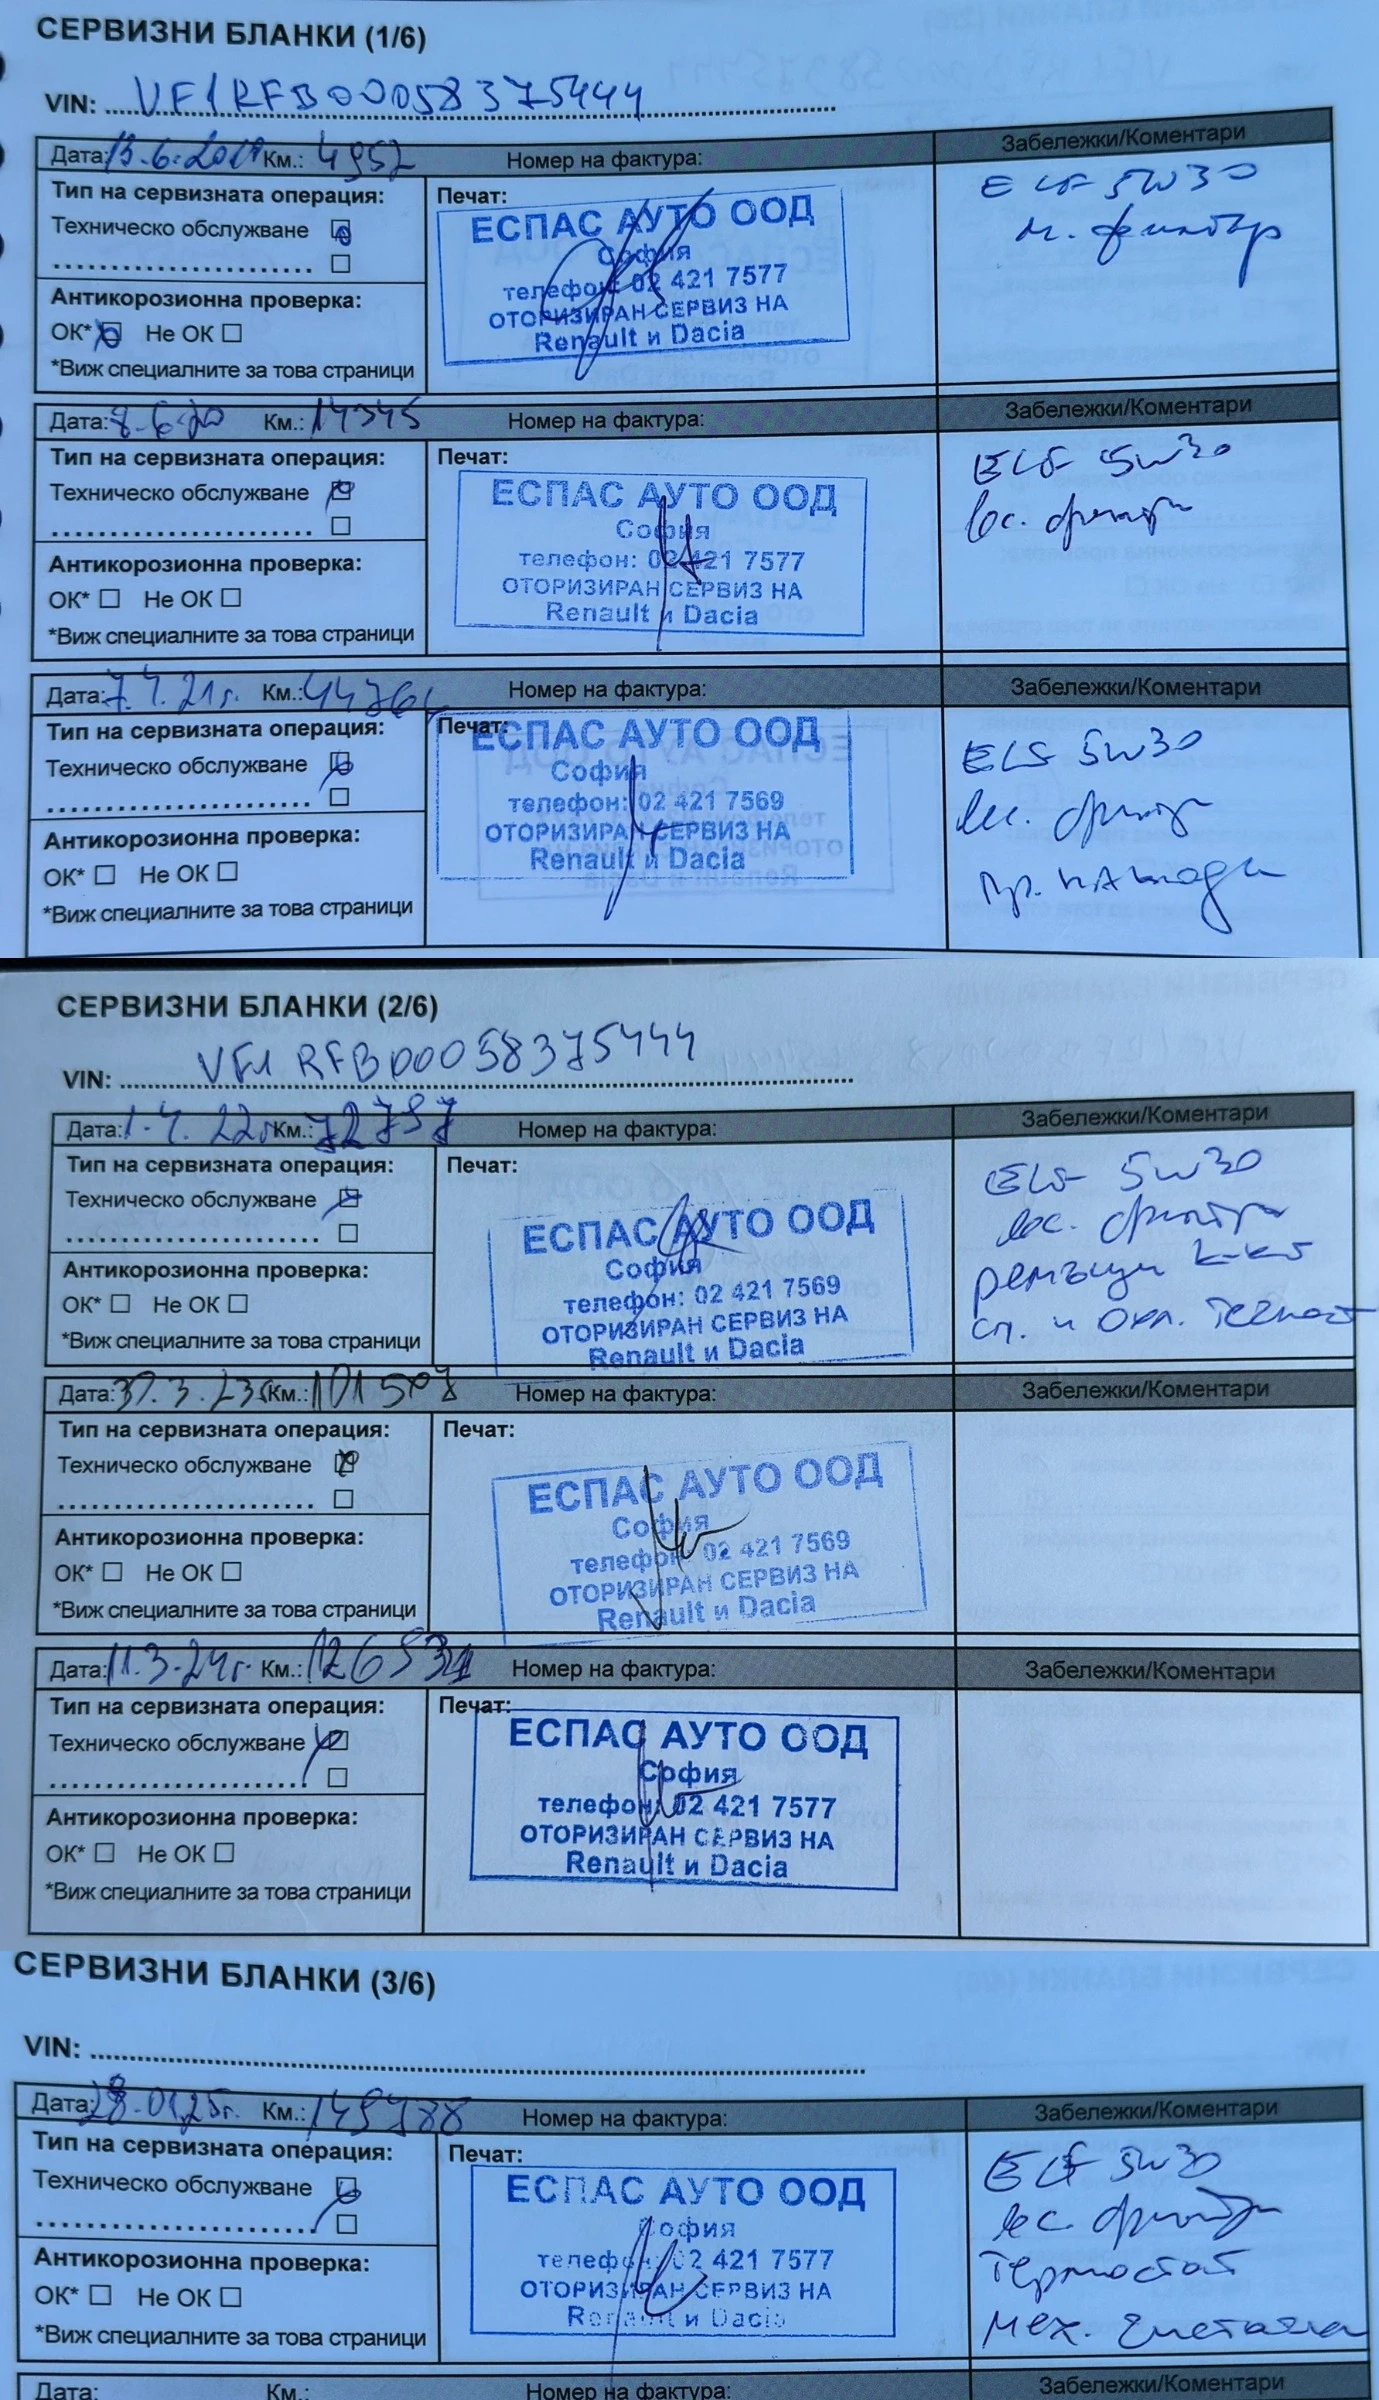 СЕРВИЗНИ БЛАНКИ (1/6)
VIN: VF1RFB00058375444
Дата: 13.6.2019 Км.: 4957 Номер на фактура: Забележки/Коментари
Тип на сервизната операция:
Техническо обслужване
Антикорозионна проверка:
ОК* Не ОК
*Виж специалните за това страници
Печат:
ЕСПАС АУТО ООД
София
телефон: 02 421 7577
ОТОРИЗИРАН СЕРВИЗ НА
Renault и Dacia
ELF 5W30
м. филтър
Дата: 8.6.20 Км.: 14345 Номер на фактура: Забележки/Коментари
Тип на сервизната операция:
Техническо обслужване
Антикорозионна проверка:
ОК* Не ОК
*Виж специалните за това страници
Печат:
ЕСПАС АУТО ООД
София
телефон: 02 421 7577
ОТОРИЗИРАН СЕРВИЗ НА
Renault и Dacia
ELF 5W30
филтр
Дата: 7.4.21г. Км.: Номер на фактура: Забележки/Коментари
Тип на сервизната операция:
Техническо обслужване
Антикорозионна проверка:
ОК* Не ОК
*Виж специалните за това страници
Печат:
ЕСПАС АУТО ООД
София
телефон: 02 421 7569
ОТОРИЗИРАН СЕРВИЗ НА
Renault и Dacia
ELF 5W30
филтр
пр. накладки
СЕРВИЗНИ БЛАНКИ (2/6)
VIN: VF1RFB00058375444
Дата: 1.4.22г. Км.: 72787 Номер на фактура: Забележки/Коментари
Тип на сервизната операция:
Техническо обслужване
Антикорозионна проверка:
ОК* Не ОК
*Виж специалните за това страници
Печат:
ЕСПАС АУТО ООД
София
телефон: 02 421 7569
ОТОРИЗИРАН СЕРВИЗ НА
Renault и Dacia
ELF 5W30
филтри
ремъци к-кт
сп. и охл. течност
Дата: 31.3.23г. Км.: 101507 Номер на фактура: Забележки/Коментари
Тип на сервизната операция:
Техническо обслужване
Антикорозионна проверка:
ОК* Не ОК
*Виж специалните за това страници
Печат:
ЕСПАС АУТО ООД
София
телефон: 02 421 7569
ОТОРИЗИРАН СЕРВИЗ НА
Renault и Dacia
Дата: 11.3.24г. Км.: Номер на фактура: Забележки/Коментари
Тип на сервизната операция:
Техническо обслужване
Антикорозионна проверка:
ОК* Не ОК
*Виж специалните за това страници
Печат:
ЕСПАС АУТО ООД
София
телефон: 02 421 7577
ОТОРИЗИРАН СЕРВИЗ НА
Renault и Dacia
СЕРВИЗНИ БЛАНКИ (3/6)
VIN:
Дата: 28.01.25г. Км.: Номер на фактура: Забележки/Коментари
Тип на сервизната операция:
Техническо обслужване
Антикорозионна проверка:
ОК* Не ОК
*Виж специалните за това страници
Печат:
ЕСПАС АУТО ООД
София
телефон: 02 421 7577
ОТОРИЗИРАН СЕРВИЗ НА
Renault и Dacia
ELF 5W30
филтри
термостат
мех.
Дата: Км.: Номер на фактура: Забележки/Коментари